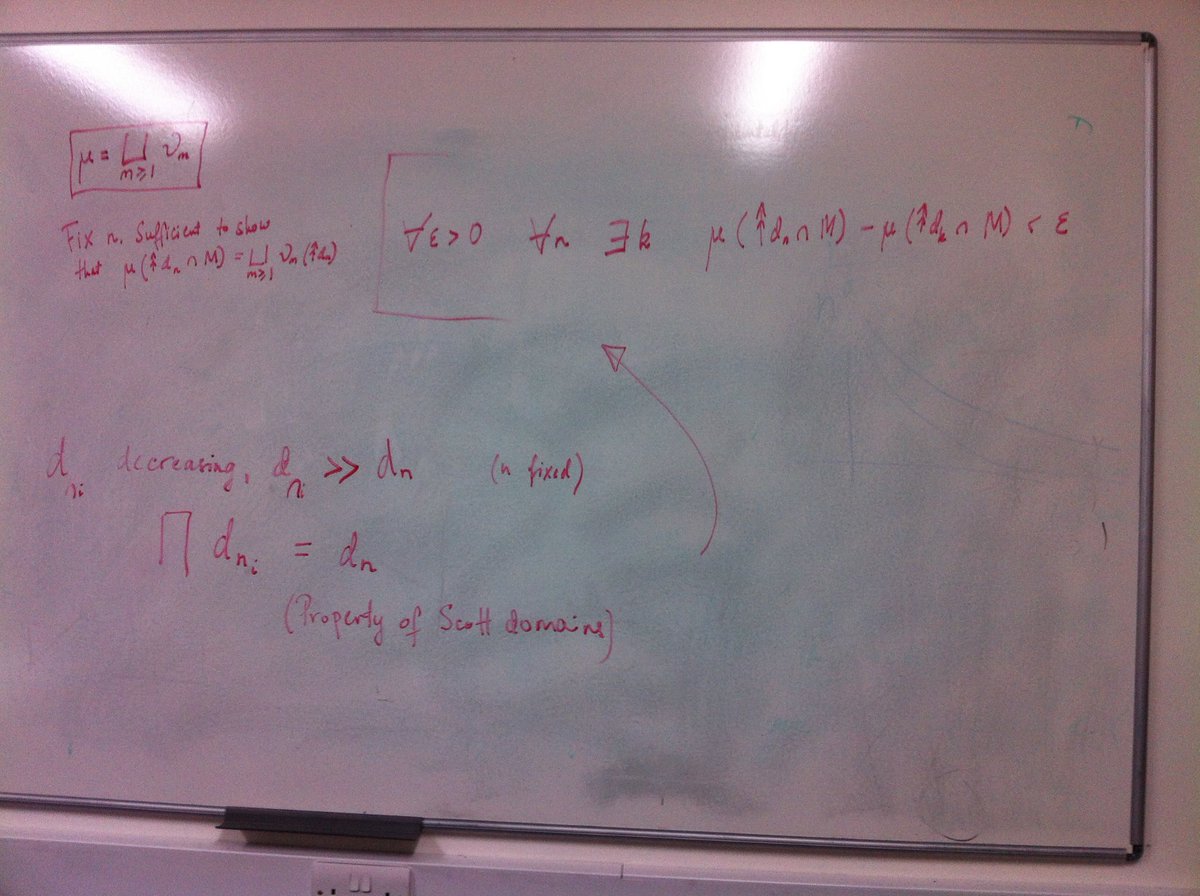 μ = ⨆ ν_m
m ≥ 1
Fix n. Sufficient to show
that μ(↟d_n ∩ M) = ⨆ ν_m(↟d_n)
m ≥ 1
∀ε > 0 ∀n ∃k μ(↟d_n ∩ M) − μ(↟d_k ∩ M) < ε
d_{n_i} decreasing, d_{n_i} ≫ d_n (n fixed)
∏ d_{n_i} = d_n
(Property of Scott domains)